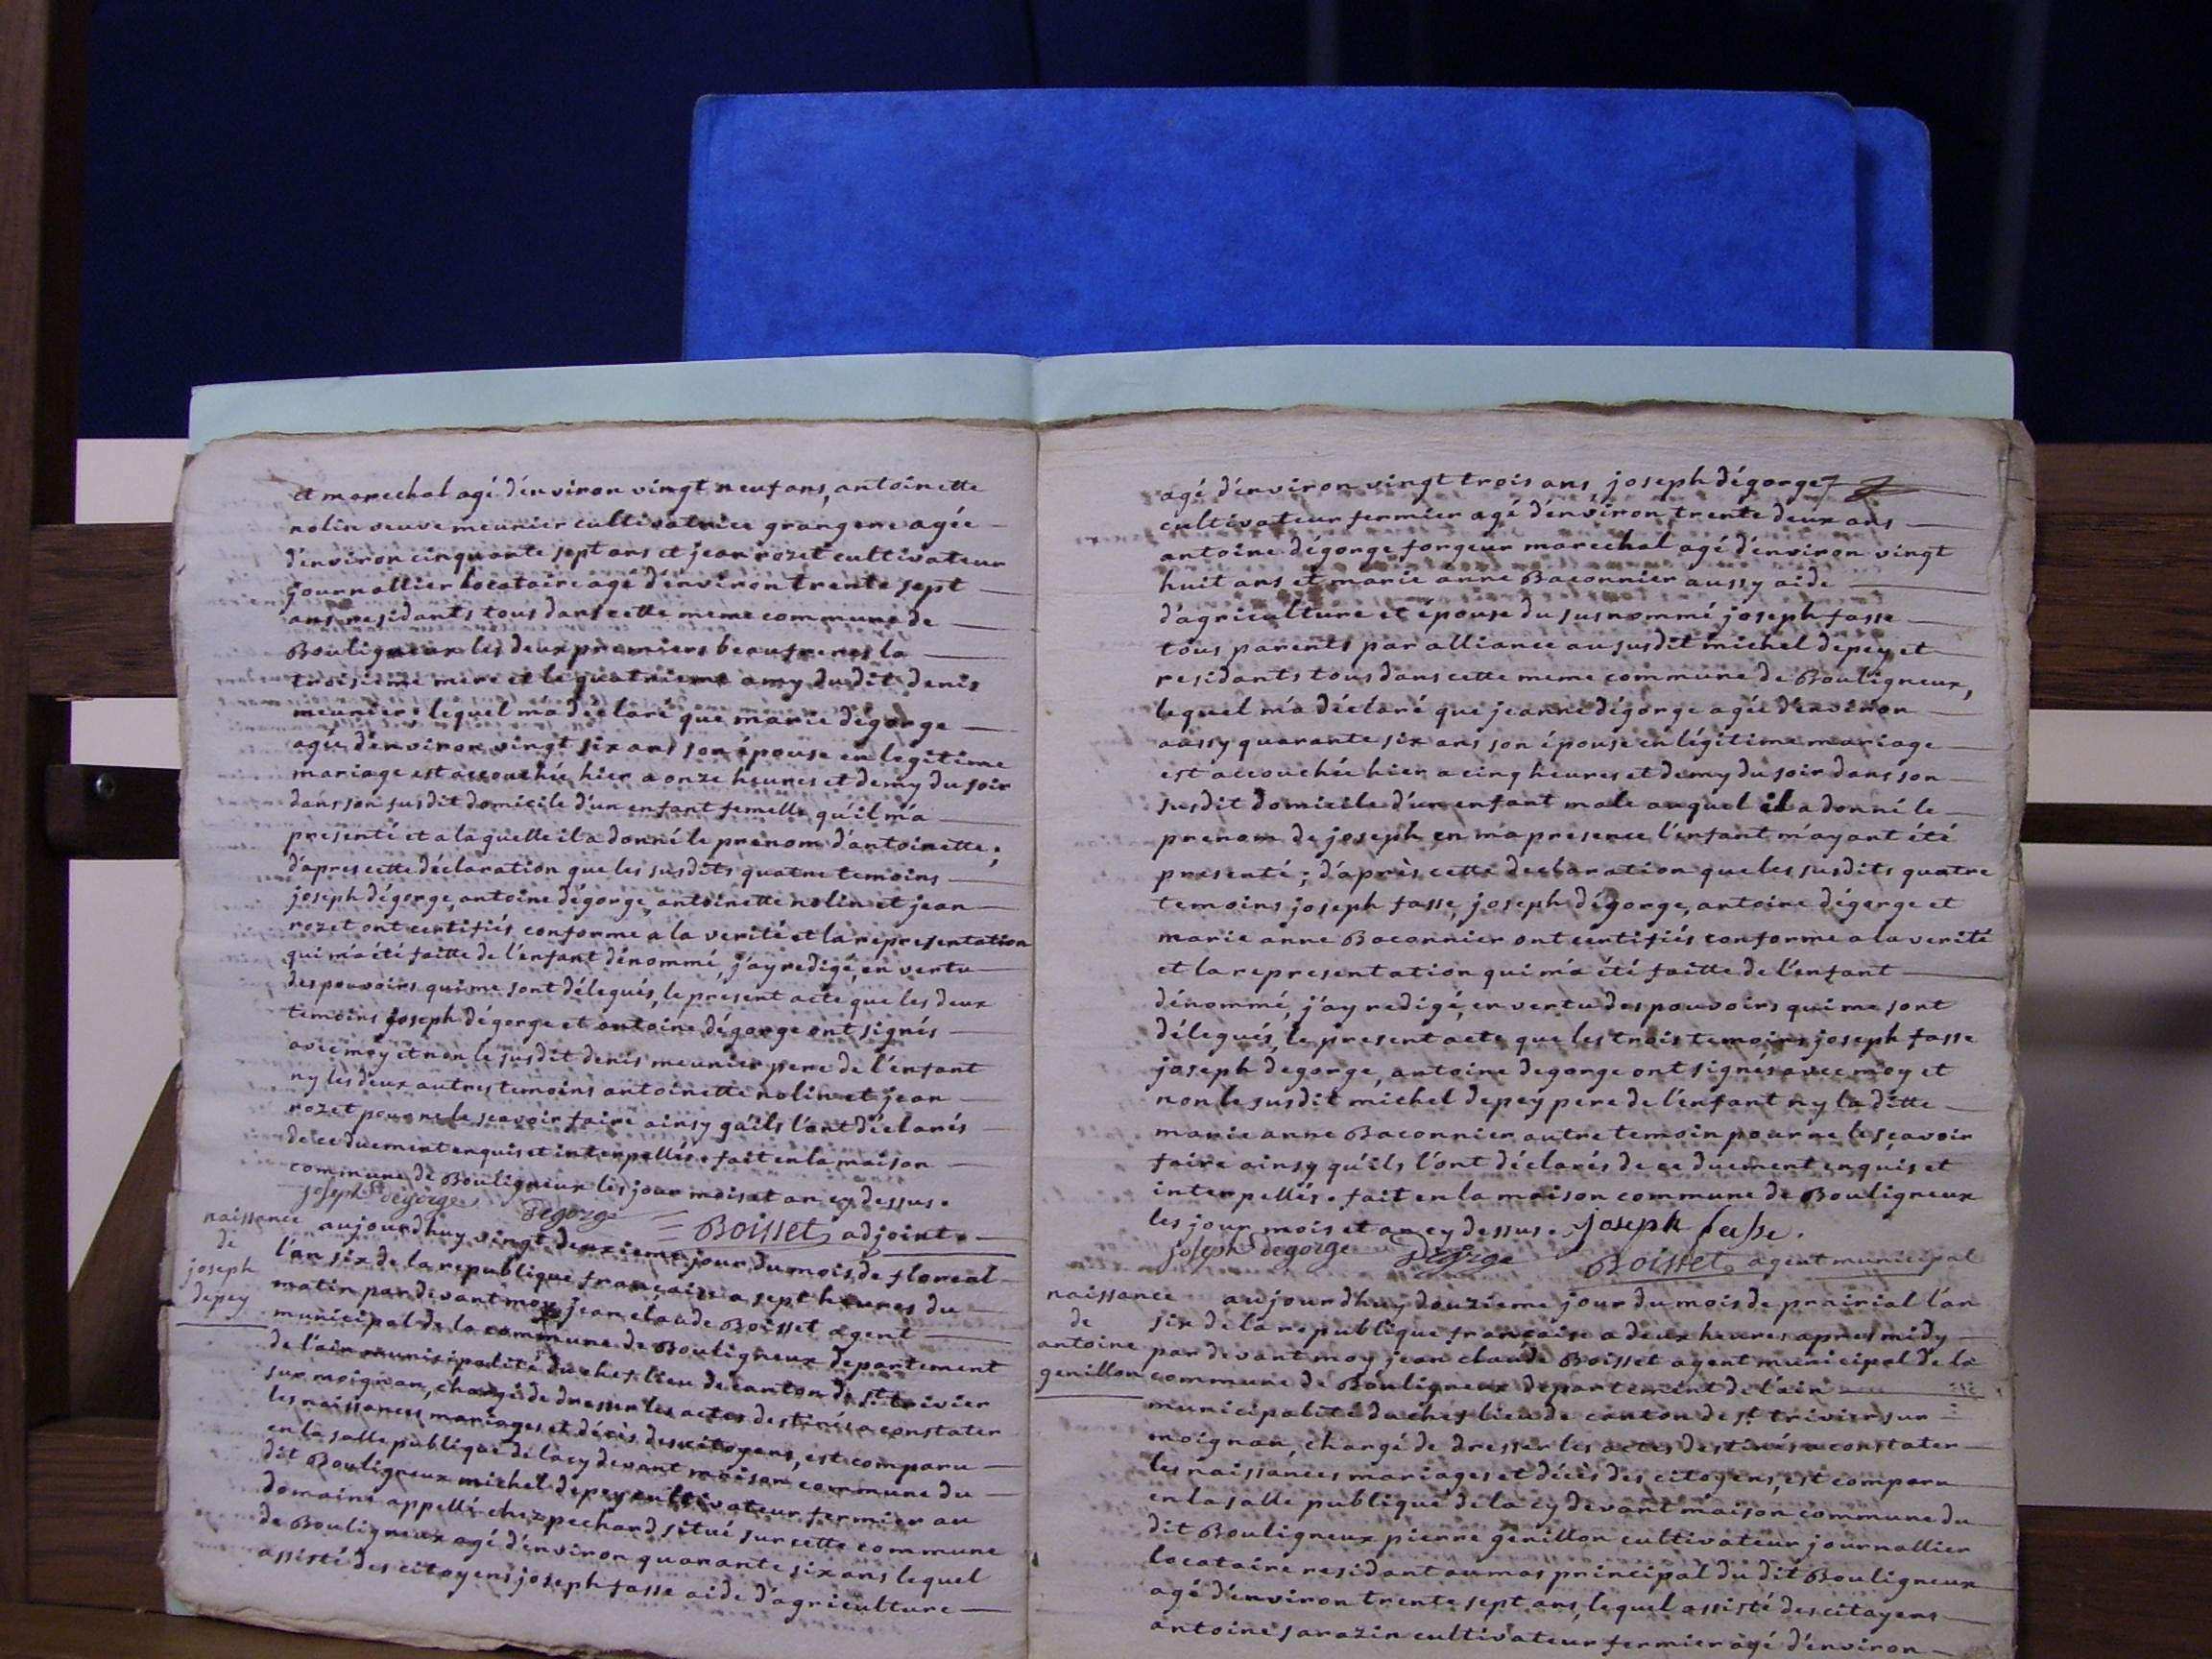 et marechal agé d'environ vingt neuf ans, antoinette
nolin veuve meunier cultivatrice grangere agée
d'environ cinquante sept ans et jean rozet cultivateur
journallier locataire agé d'environ trente sept
ans residants tous dans cette meme commune de
Bouligneux les deux premiers beaufreres la
troisieme mere et le quatrieme amy dudit denis
meunier, lequel m'a déclaré que marie dégorge
agée d'environ vingt six ans son épouse en legitime
mariage est accouchée hier a onze heures et demy du soir
dans son susdit domicile d'un enfant femelle qu'il m'a
presenté et a laquelle il a donné le prenom d'antoinette;
d'apres cette déclaration que les susdits quatre temoins
joseph dégorge, antoine dégorge, antoinette nolin et jean
rozet ont certifiés conforme a la verité et la representation
qui m'a été faitte de l'enfant dénommé, j'ay redigé, en vertu
des pouvoirs qui me sont délegués, le present acte que les deux
temoins joseph dégorge et antoine dégorge ont signés
avec moy et non le susdit denis meunier pere de l'enfant
ny les deux autres temoins antoinette nolin et jean
rozet pour ne le sçavoir faire ainsy qu'ils l'ont déclarés
de ce duement enquis et interpellés. fait en la maison
commune de Bouligneux les jour mois et an cy dessus.
joseph degorge Degorge Boisset adjoint.
naissance
de
joseph
depey
aujourdhuy vingt deuxieme jour du mois de floreal
l'an six de la republique française a sept heures du
matin par devant moy jean claude Boisset agent
municipal de la commune de Bouligneux departement
de l'ain municipalité du chef lieu de canton de st. trivier
sur moignan, chargé de dresser les actes destinés a constater
les naissances mariages et décès des citoyens, est comparu
en la salle publique de la cy devant maison commune du
dit Bouligneux michel depey cultivateur fermier au
domaine appellé chez pechard situé sur cette commune
de Bouligneux agé d'environ quarante six ans lequel
assisté des citoyens joseph fasse aide d'agriculture
agé d'environ vingt trois ans, joseph dégorge
cultivateur fermier agé d'environ trente deux ans
antoine dégorge forgeur marechal agé d'environ vingt
huit ans et marie anne Baconnier aussy aide
d'agriculture et épouse du susnommé joseph fasse
tous parents par alliance au susdit michel depey et
residants tous dans cette meme commune de Bouligneux,
lequel m'a déclaré que jeanne dégorge agée d'environ
aussy quarante six ans son épouse en légitime mariage
est accouchée hier a cinq heures et demy du soir dans son
susdit domicile d'un enfant male auquel il a donné le
prenom de joseph en m'a presence l'enfant m'ayant été
presenté; d'après cette declaration que les susdits quatre
temoins joseph fasse, joseph dégorge, antoine dégorge et
marie anne Baconnier ont certifiés conforme a la verité
et la representation qui m'a été faitte de l'enfant
dénommé, j'ay redigé, en vertu des pouvoirs qui me sont
délegués, le present acte que les trois temoins joseph fasse
joseph degorge, antoine degorge ont signés avec moy et
non le susdit michel depey pere de l'enfant ny la ditte
marie anne Baconnier autre temoin pour ne le sçavoir
faire ainsy qu'ils l'ont déclarés de ce duement enquis et
interpellés. fait en la maison commune de Bouligneux
les jour mois et an cy dessus. joseph fasse.
joseph degorge Degorge Boisset agent municipal
naissance
de
antoine
genillon
aujourdhuy douzieme jour du mois de prairial l'an
six de la republique française a deux heures apres midy
par devant moy jean claude Boisset agent municipal de la
commune de Bouligneux departement de l'ain
municipalité du chef lieu de canton de st. trivier sur
moignan, chargé de dresser les actes destinés a constater
les naissances mariages et décès des citoyens, est comparu
en la salle publique de la cy devant maison commune du
dit Bouligneux pierre genillon cultivateur journallier
locataire residant au mas principal du dit Bouligneux
agé d'environ trente sept ans, lequel assisté des citoyens
antoine sarazin cultivateur fermier agé d'environ